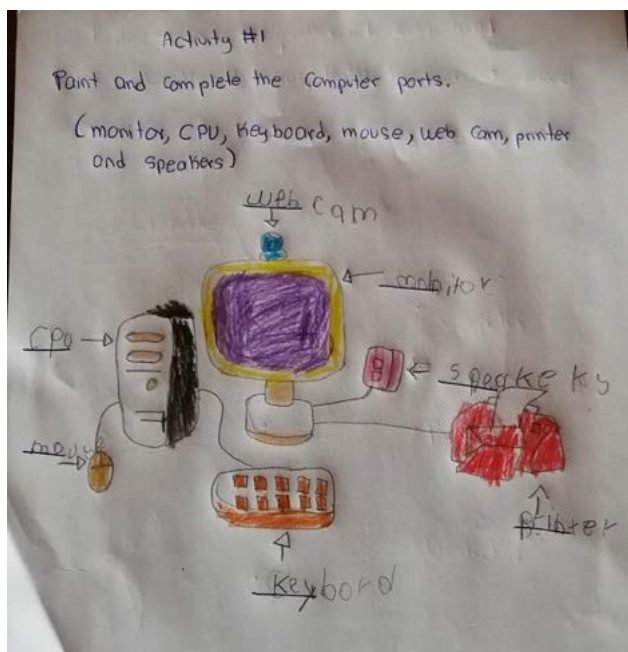 Activity #1
Paint and complete the Computer parts.
(monitor, CPU, Keyboard, mouse, web cam, printer
and speakers)
web cam
monitor
CPU
speakers
mouse
printer
keybord